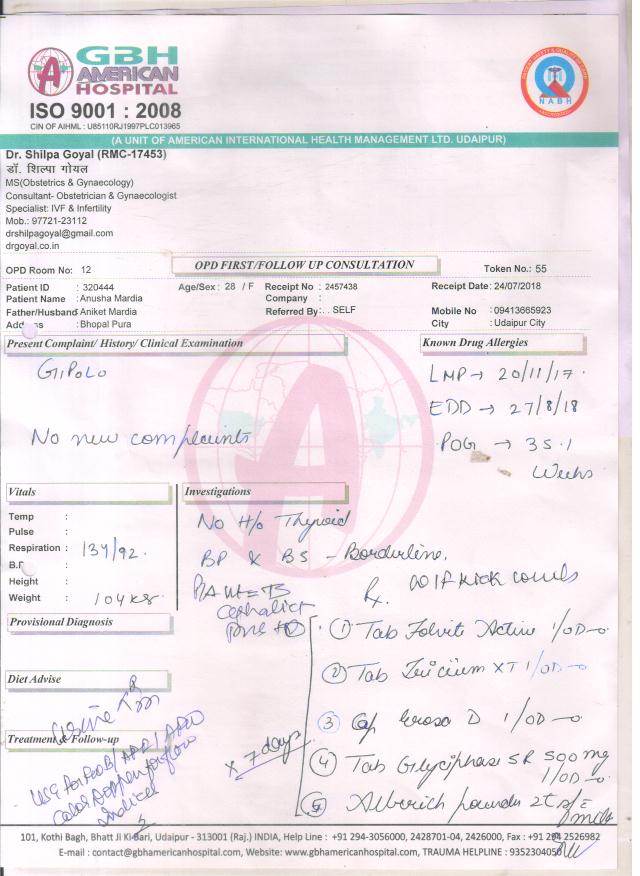 GBH
AMERICAN
HOSPITAL
ISO 9001 : 2008
CIN OF AIHML : U85110RJ1997PLC013965
NABH
(A UNIT OF AMERICAN INTERNATIONAL HEALTH MANAGEMENT LTD. UDAIPUR)
Dr. Shilpa Goyal (RMC-17453)
डॉ. शिल्पा गोयल
MS(Obstetrics & Gynaecology)
Consultant- Obstetrician & Gynaecologist
Specialist: IVF & Infertility
Mob.: 97721-23112
drshilpagoyal@gmail.com
drgoyal.co.in
OPD Room No: 12
OPD FIRST/FOLLOW UP CONSULTATION
Token No.: 55
Patient ID : 320444 Age/Sex : 28 / F Receipt No : 2457438 Receipt Date : 24/07/2018
Patient Name : Anusha Mardia Company :
Father/Husband Aniket Mardia Referred By : . SELF Mobile No : 09413665923
: Bhopal Pura City : Udaipur City
Present Complaint/ History/ Clinical Examination
Known Drug Allergies
G1P0L0
LMP → 20/11/17.
EDD → 27/8/18
No new complaints
POG → 35.1
Weeks
Vitals
Investigations
Temp :
Pulse :
Respiration : 134/92.
Height :
Weight : 104 kg.
No H/o Thyroid
BP & BS - Borderline.
Cephalic
Rx. kick counts
Provisional Diagnosis
① Tab Folvite Active 1/OD
② Tab XT 1/OD
Diet Advise
③ Cap D 1/OD
Treatment & Follow-up
x 7 days
④ Tab Glyciphase SR 500 mg
1/OD
USG for
Color Doppler flow
Indices
⑤ powder
101, Kothi Bagh, Bhatt Ji Ki Bari, Udaipur - 313001 (Raj.) INDIA, Help Line : +91 294-3056000, 2428701-04, 2426000, Fax : +91 294 2526982
E-mail : contact@gbhamericanhospital.com, Website: www.gbhamericanhospital.com, TRAUMA HELPLINE : 9352304050